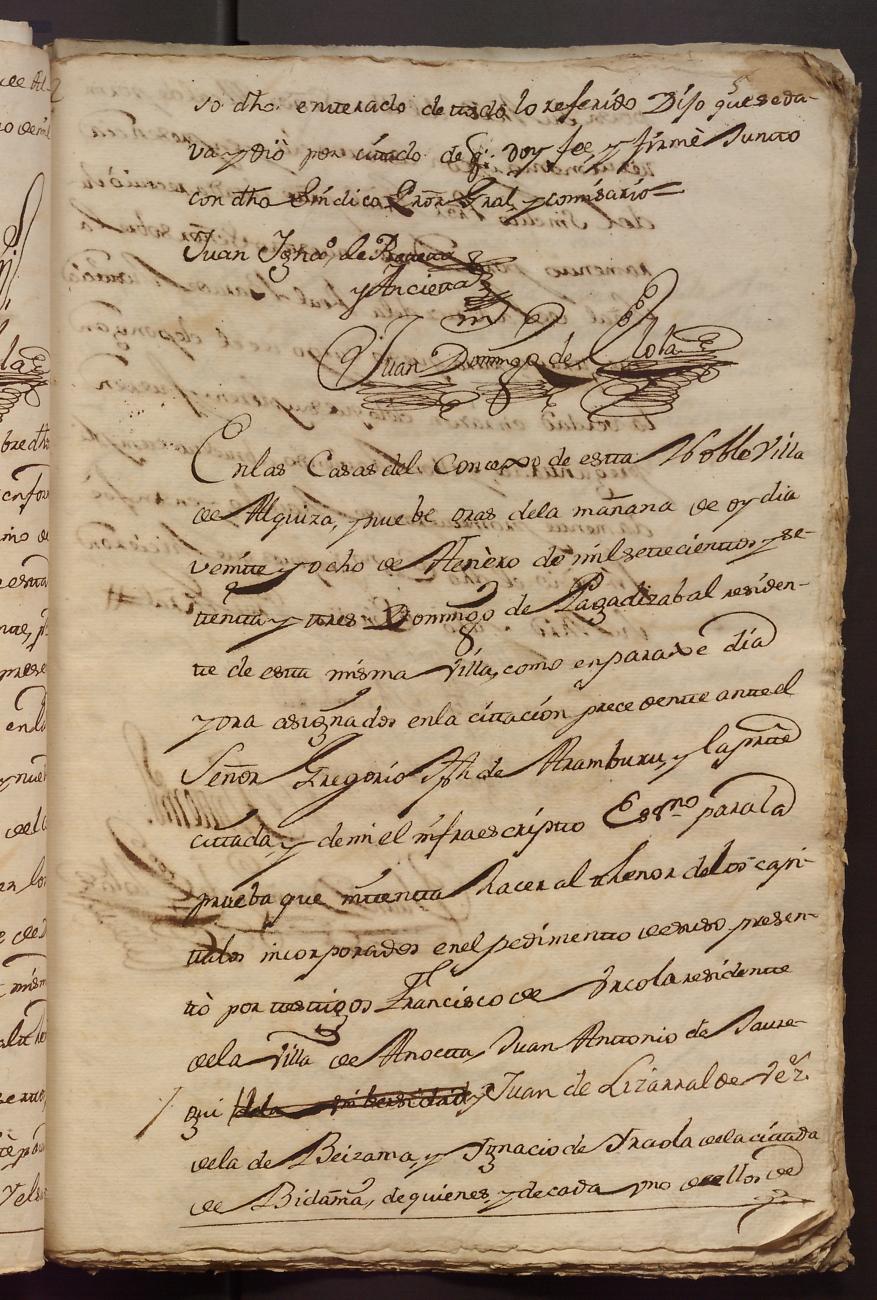 so dho. enterado de todo lo referido Dijo que se da-
va y diò por citado de q.e doy fee, y firmè Junto
con dho Sindico Pror Gral y comisario =
Juan Ignco. de
y Ancieta
Juan Domingo de Olola
En las Casas del Concexo de esta Noble Villa
de Alquiza, y nuebe oras dela mañana de oy dia
veinte y ocho de Henèro de mil setecientos y se-
tenta y tres Domingo de Pagadizabal residen-
te de esta misma Villa, como en paraxe dia
y ora asignados en la citación precedente ante el
Señor Gregorio Jph de Aramburu, y la prte
citada y de mi el infraescripto Essno para la
prueba que intenta Hacer al thenor de los capi-
tulos incorporados en el pedimento de suso presen-
tò por testigos Francisco de Yrcola residente
de la Villa de Anoeta, Juan Antonio de Saure-
gui dela Unibersidad y Juan de Lizarralde Vez.
de la de Beizama, y Ygnacio de Yrcola de la citada
de Bidama, de quienes, y de cada uno de ellos